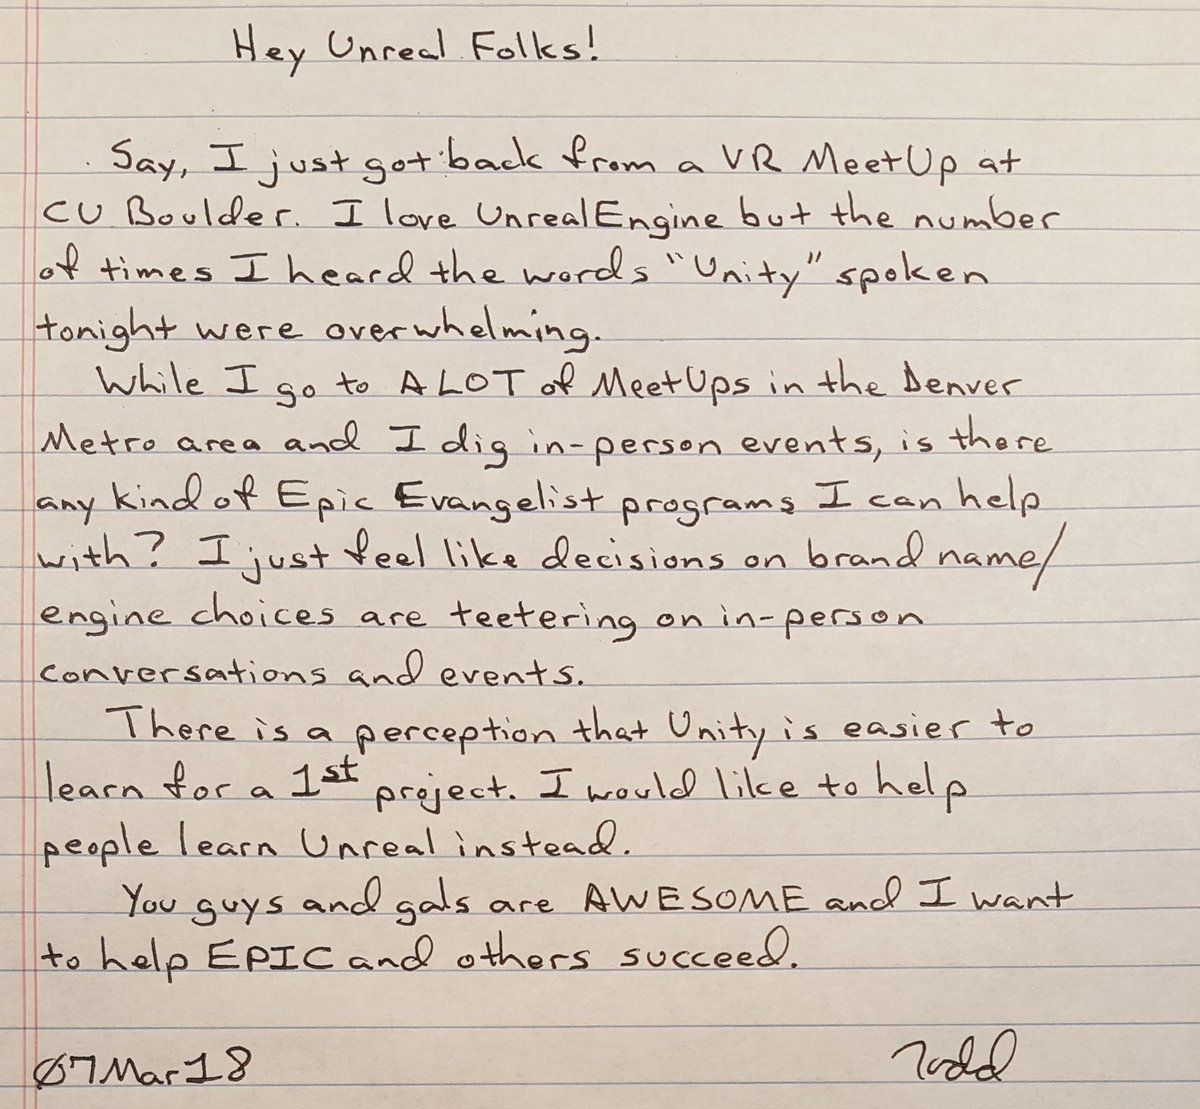 Hey Unreal Folks!
Say, I just got back from a VR MeetUp at
CU Boulder. I love UnrealEngine but the number
of times I heard the words "Unity" spoken
tonight were overwhelming.
While I go to A LOT of MeetUps in the Denver
Metro area and I dig in-person events, is there
any kind of Epic Evangelist programs I can help
with? I just feel like decisions on brand name/
engine choices are teetering on in-person
conversations and events.
There is a perception that Unity is easier to
learn for a 1st project. I would like to help
people learn Unreal instead.
You guys and gals are AWESOME and I want
to help EPIC and others succeed.
07Mar18 Todd